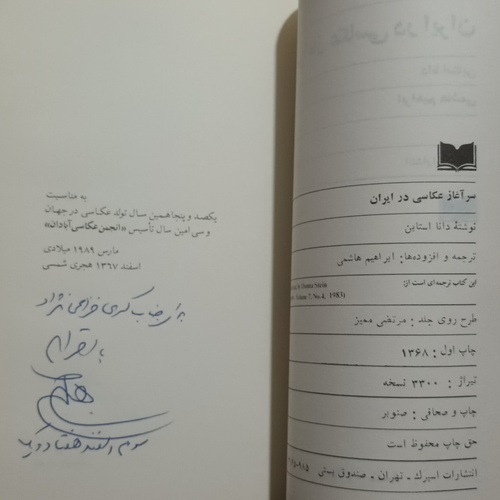 به مناسبت
یکصد و پنجاهمین سال تولد عکاسی در جهان
و سی امین سال تأسیس «انجمن عکاسی آبادان»
مارس ۱۹۸۹ میلادی
اسفند ۱۳۶۷ هجری شمسی
با احترام
سوم اسفند هفتاد و یک
سرآغاز عکاسی در ایران
نوشتهٔ دانا استاین
ترجمه و افزوده‌ها: ابراهیم هاشمی
این کتاب ترجمه‌ای است از:
by Donna Stein
Volume 7, No.4, 1983)
طرح روی جلد: مرتضی ممیز
چاپ اول: ۱۳۶۸
تیراژ: ۳۳۰۰ نسخه
چاپ و صحافی: صنوبر
حق چاپ محفوظ است
انتشارات اسپرک - تهران - صندوق پستی